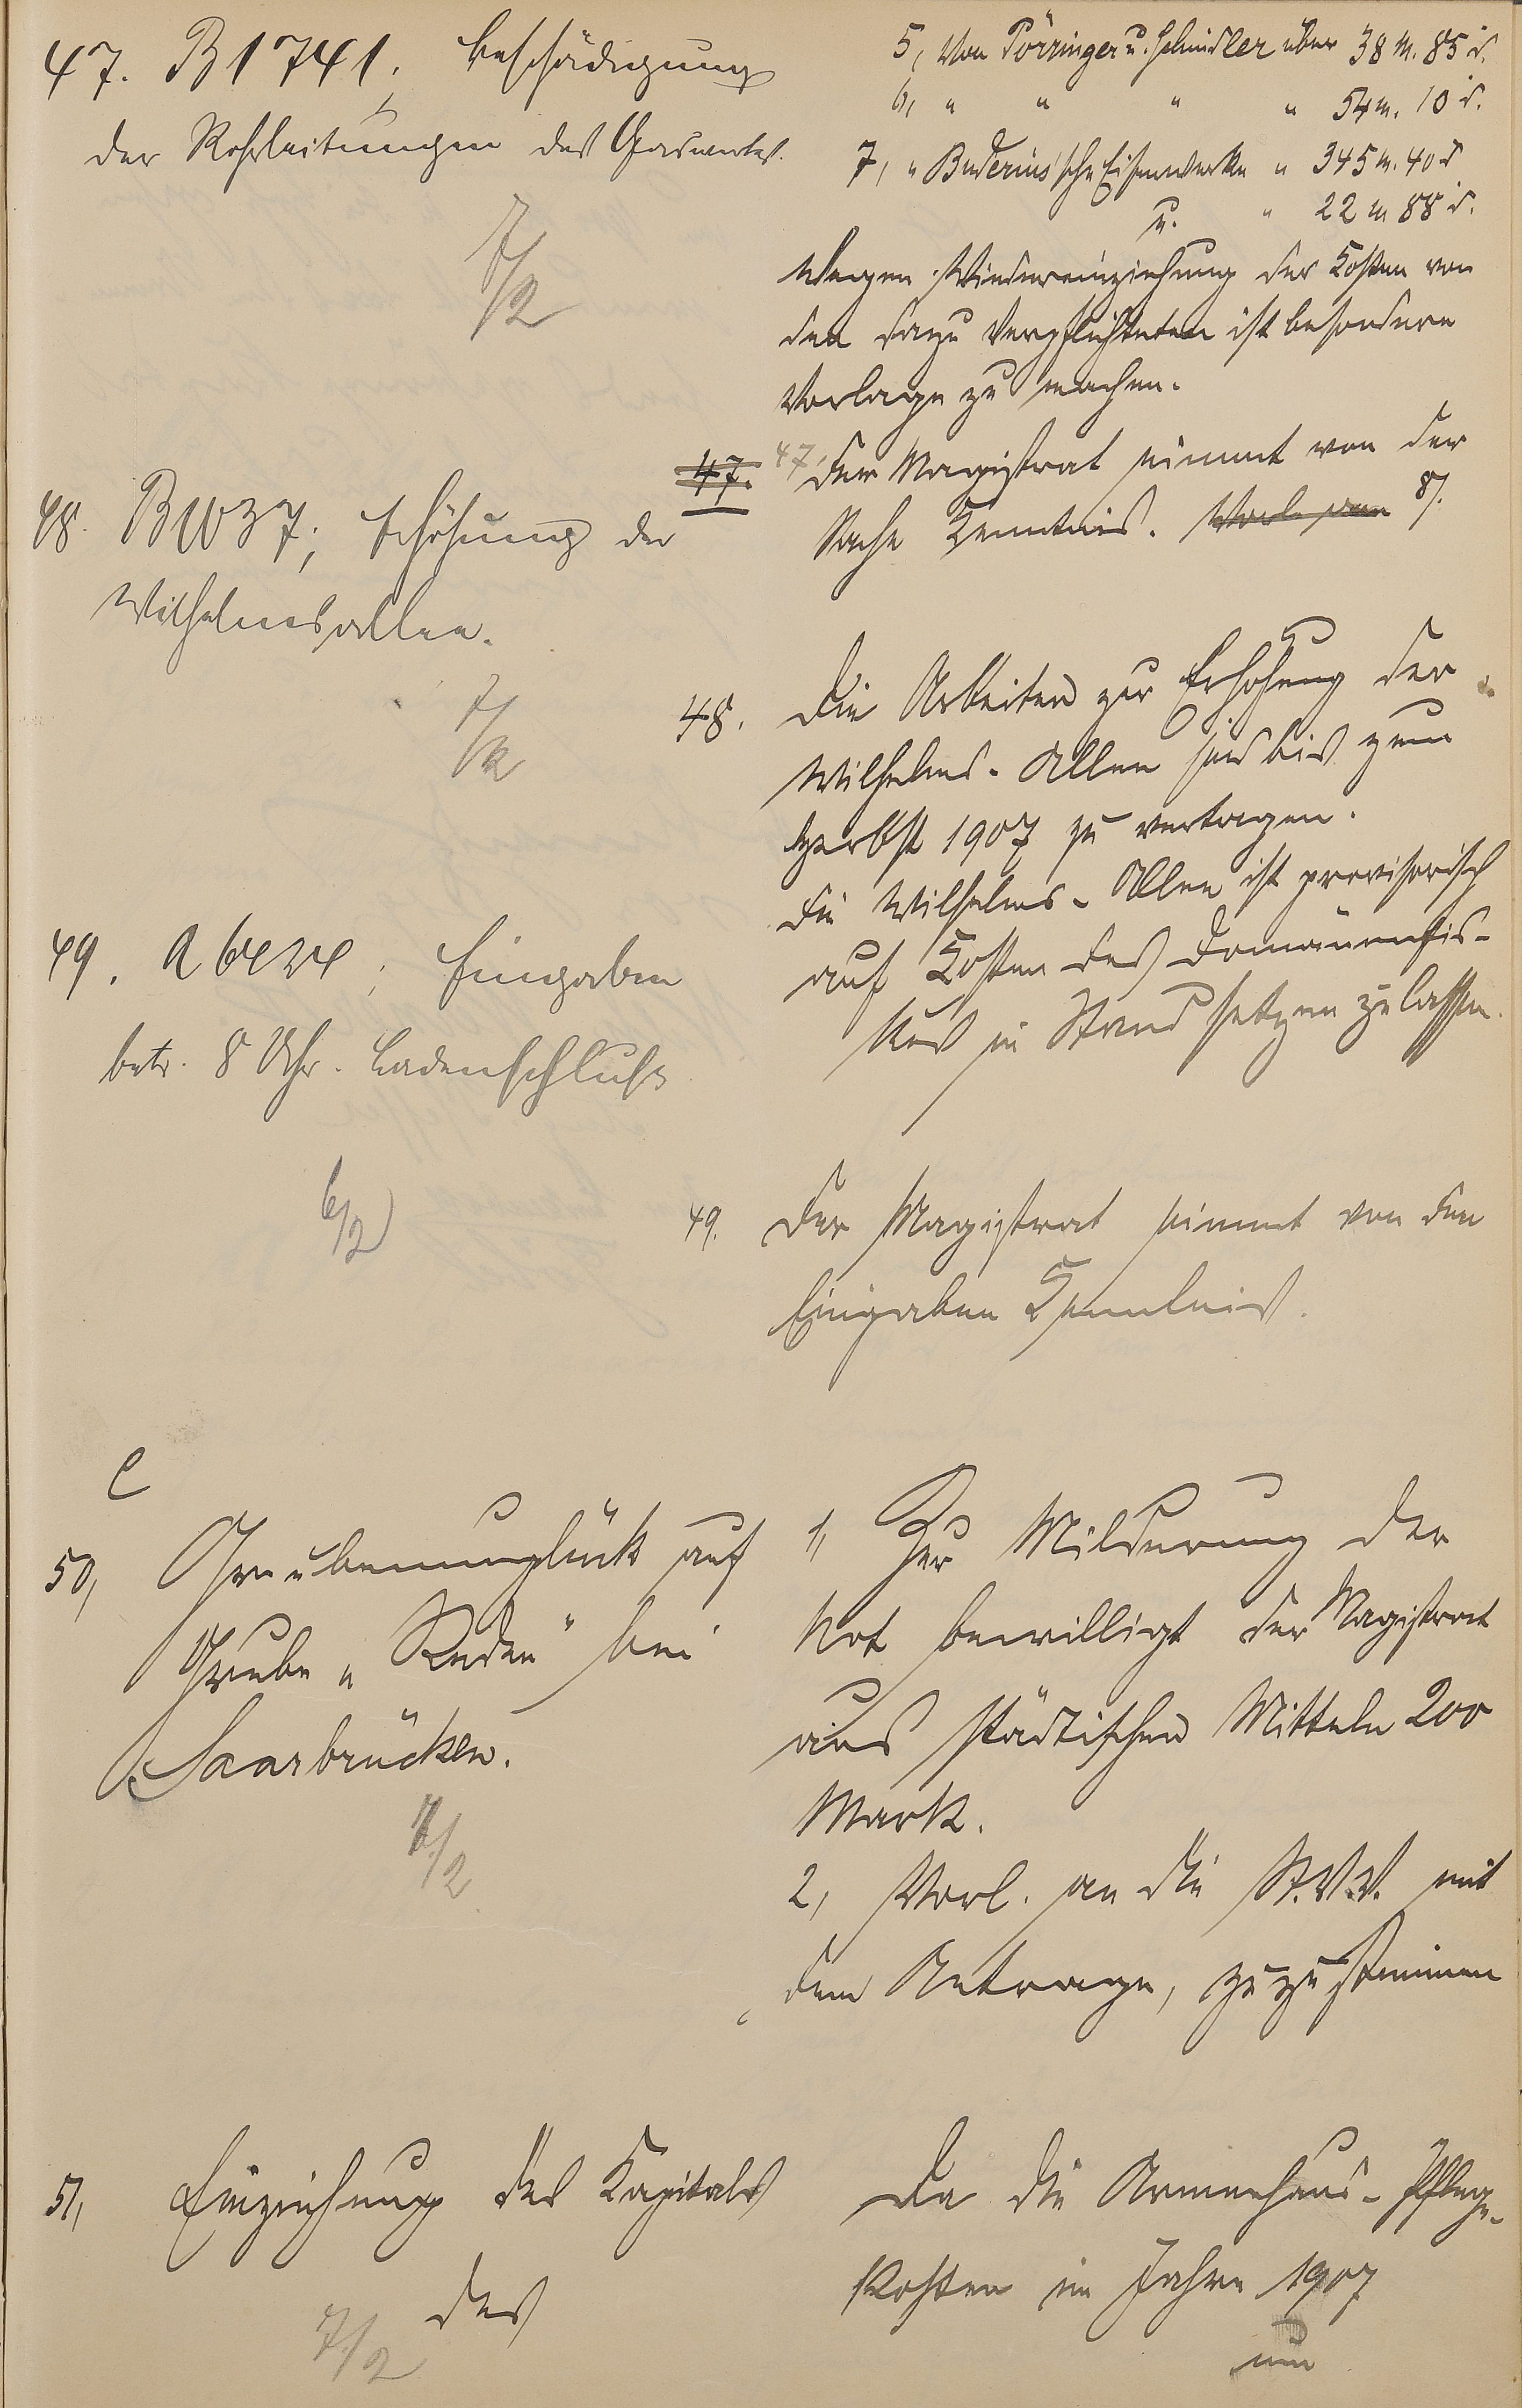 47. B 1741, Beschädigung
der Rohrleitungen des Gaswerkes.
7/2
5, Von Pörringer u. Schindler über 38 M. 85 d.
6, " " " " 54 M. 10 d.
7, " Buderus'sche Eisenwerke " 345 M. 40 d
u. " 22 M 88 d.
Wegen Wiedereinziehung der Kosten von
den dazu Verpflichteten ist besondere
Vorlage zu machen.
47. 47, Der Magistrat nimmt von der
Sache Kenntnis. 8/.
48. B 1037; Erhöhung der
Wilhelmsallee.
7/2
48. Die Arbeiten zur Erhöhung der
Wilhelms-Allee sind bis zum
Herbst 1907 zu vertagen.
Die Wilhelms-Allee ist provisorisch
auf Kosten des Domänenfis-
kus in Stand setzen zu lassen.
49. Eingaben
betr. 8 Uhr. Ladenschluß
6/2
49. Der Magistrat nimmt von den
Eingaben Kenntnis.
C
50, Grubenunglück auf
Grube „Reden" bei
Saarbrücken.
7/2
1, Zur Milderung der
Not bewilligt der Magistrat
aus städtischen Mitteln 200
Mark.
2, Vorl. an die St.V.V. mit
dem Antrage, zuzustimmen
51, Einziehung des Kapitals
des
7/2
Da die Armenhaus-Pflege-
kosten im Jahre 1907
um